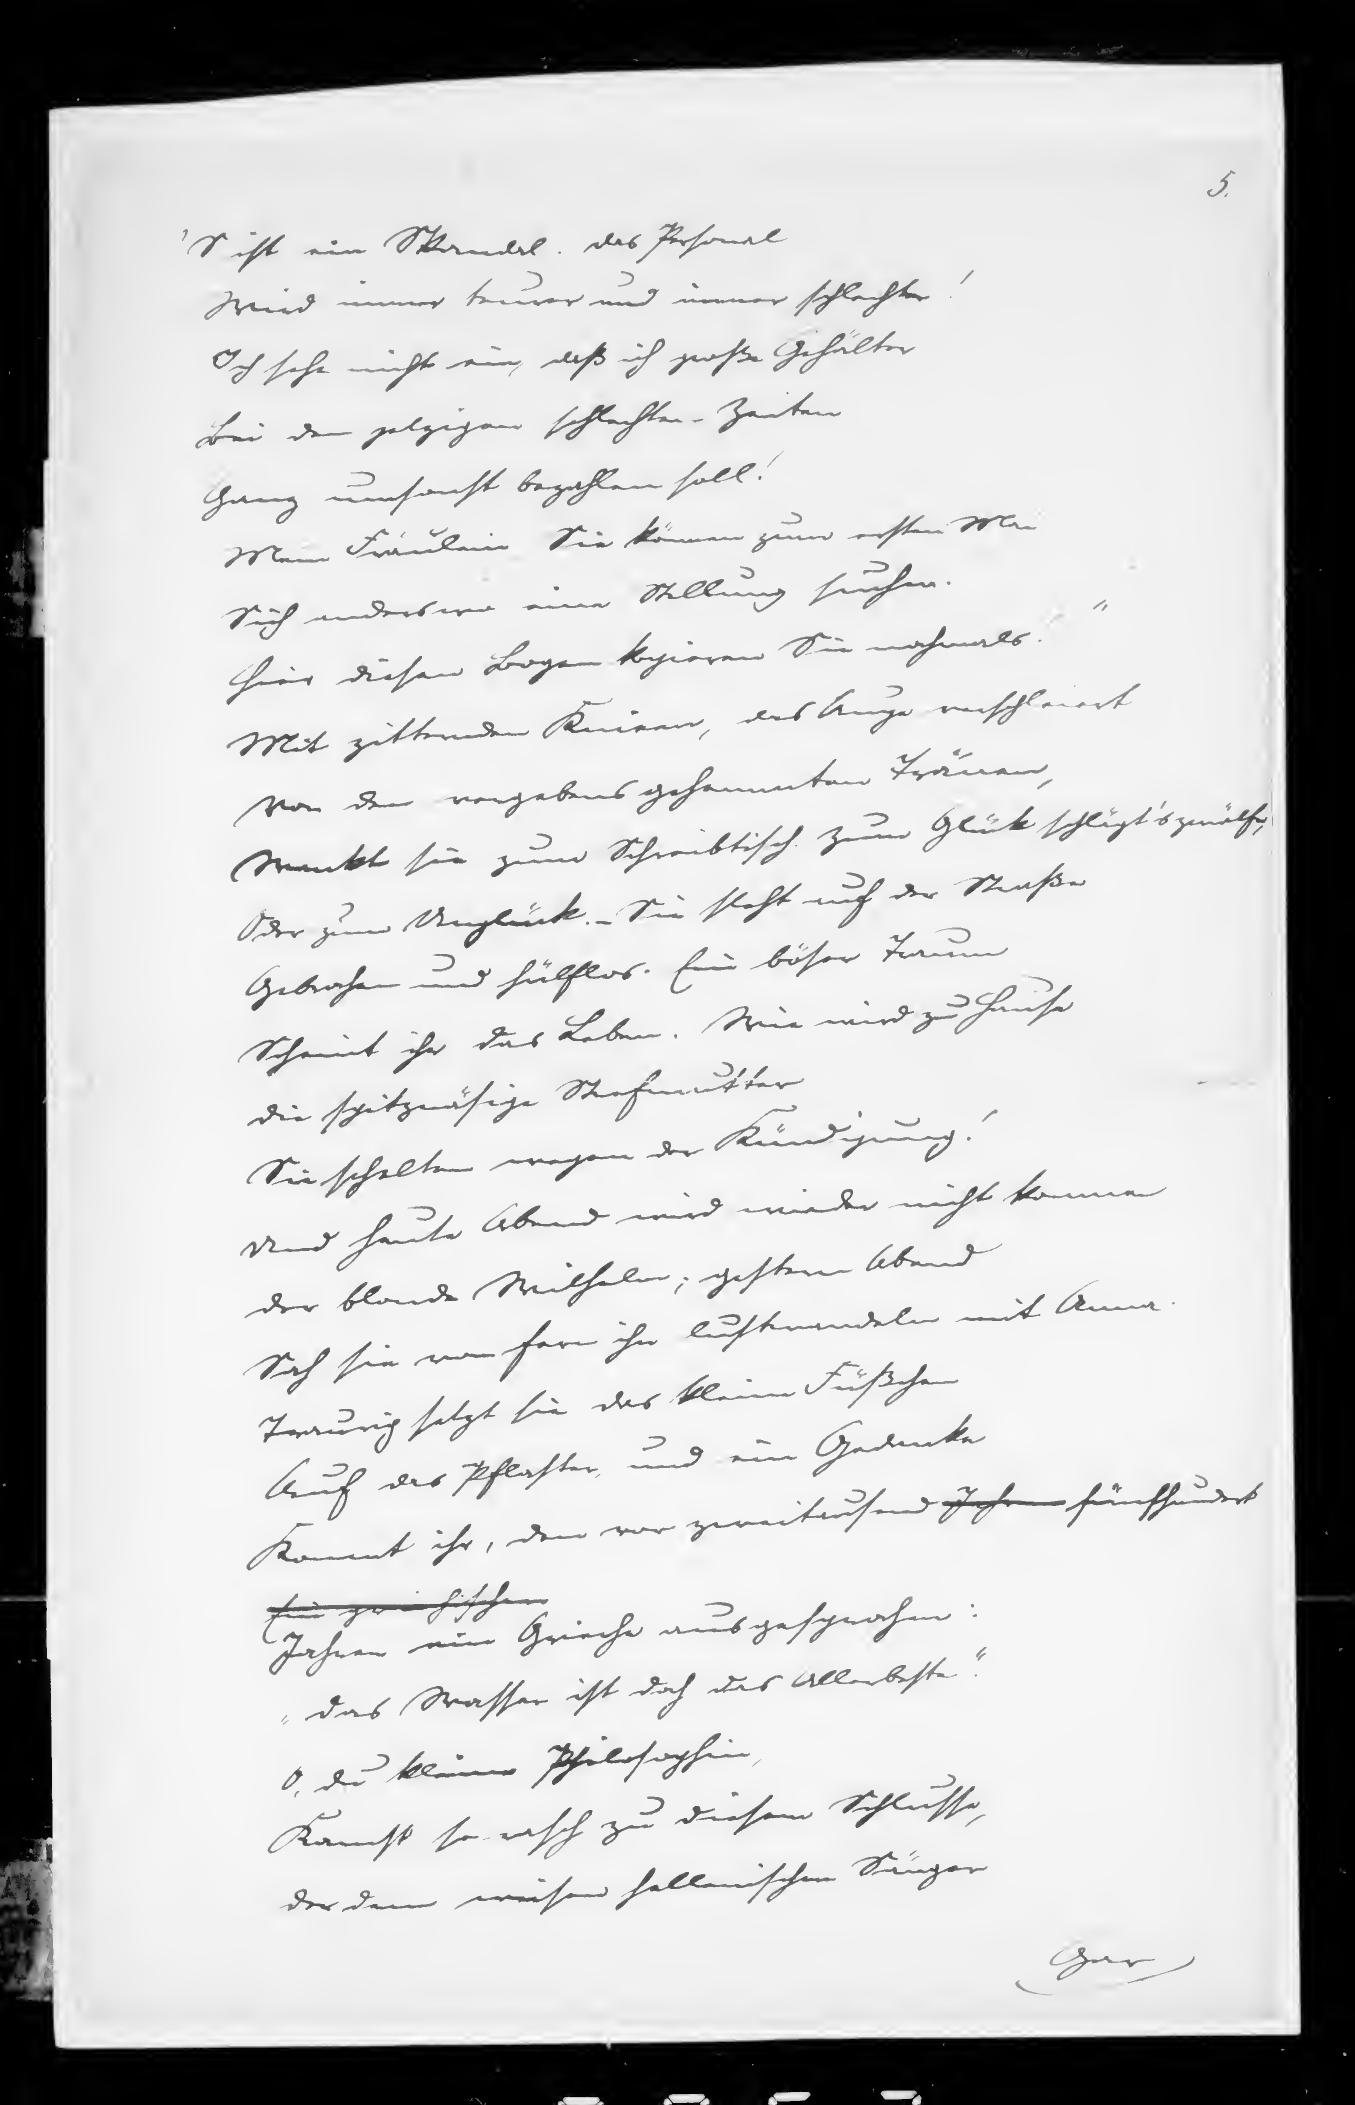 5.
'S ist ein Skandal. das Personal
Wird immer teurer und immer schlechter!
Ich sehe nicht ein, daß ich große Gehälter
Bei den jetzigen schlechten Zeiten
Ganz umsonst bezahlen soll!
Mein Fräulein Sie können zum ersten Mai
Sich anderswo eine Stellung suchen.
Hier diesen Bogen kopieren Sie nochmals!"
Mit zitternden Knieen, das Auge verschleiert
Von den vergebens gehemmten Tränen,
Wankt sie zum Schreibtisch. Zum Glück schlägt's zwölfe,
Oder zum Unglück. – Sie steht auf der Straße
Gebrochen und hülflos. Ein böser Traum
Scheint ihr das Leben. Wie wird zu Hause
die spitznäsige Stiefmutter
Sie schelten wegen der Kündigung!
Und heute Abend wird wieder nicht kommen
der blonde Wilhelm; gestern Abend
Sah sie von fern ihn lustwandeln mit Anna.
Traurig setzt sie das kleine Füßchen
Auf das Pflaster, und ein Gedanke
Kommt ihr, den vor zweitausend Jahren fünfhundert
Ein griechischer
Jahren ein Grieche ausgesprochen:
„das Wasser ist doch das Allerbeste".
O, du kleine Philosophin,
Kamst so rasch zu diesem Schlusse,
der dem weisen hellenischen Sänger
Gar